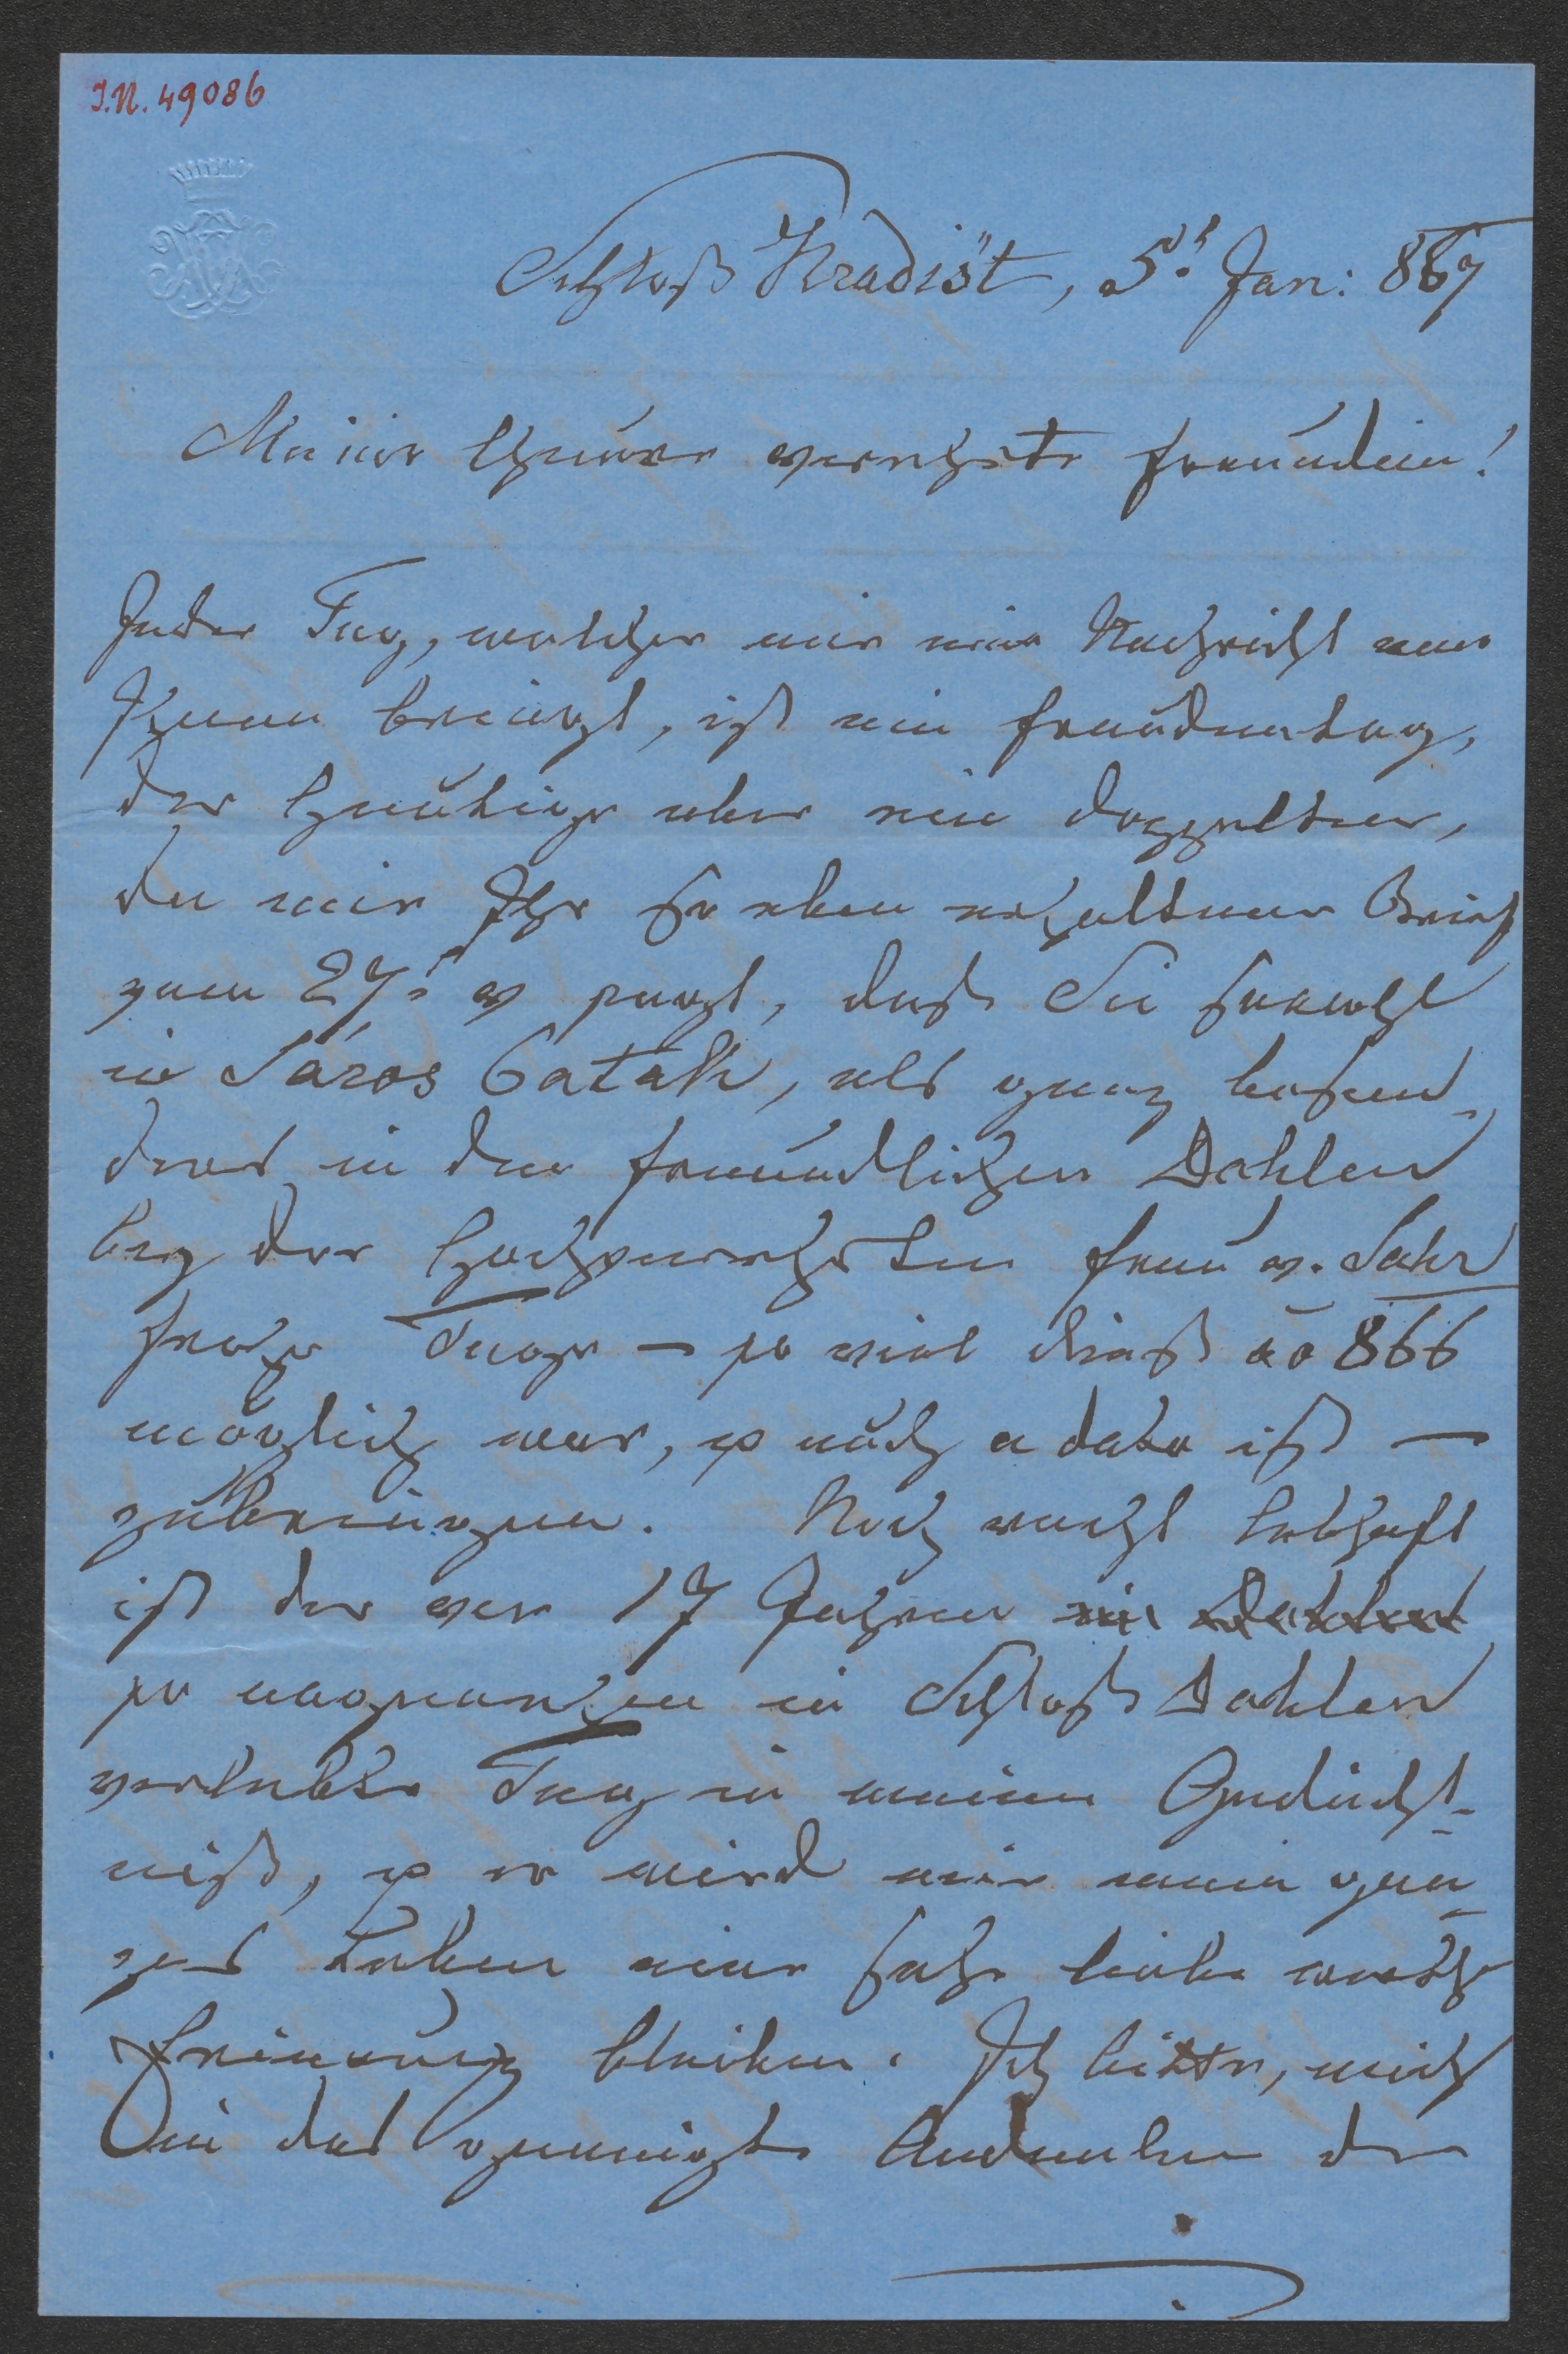 I.N. 49086
Schloß Hradišt, 5t Jan: 867
Meine theure verehrte Freundin!
Jeder Tag, welcher mir eine Nachricht von
Ihnen bringt, ist ein Freudentag,
der heutige aber ein doppelter,
da mir Ihr so eben erhaltener Brief
vom 27t v sagt, daß Sie sowohl
in Sáros Patak, als ganz beson-
ders in dem freundlichen Dahlen
bey der hochverehrten Frau v. Sahr
frohe Tage – so viel dieß ao 866
möglich war, u auch a dato ist –
zubringen. Noch recht lebhaft
ist der vor 17 Jahren in Dahlen
so angenehm in Schloß Dahlen
verlebte Tag in meinem Gedächt-
niß, u er wird mir mein gan-
zes Leben eine sehr liebe werthe
Erinnerung bleiben. Ich bitte, mich
in das geneigte Andenken der